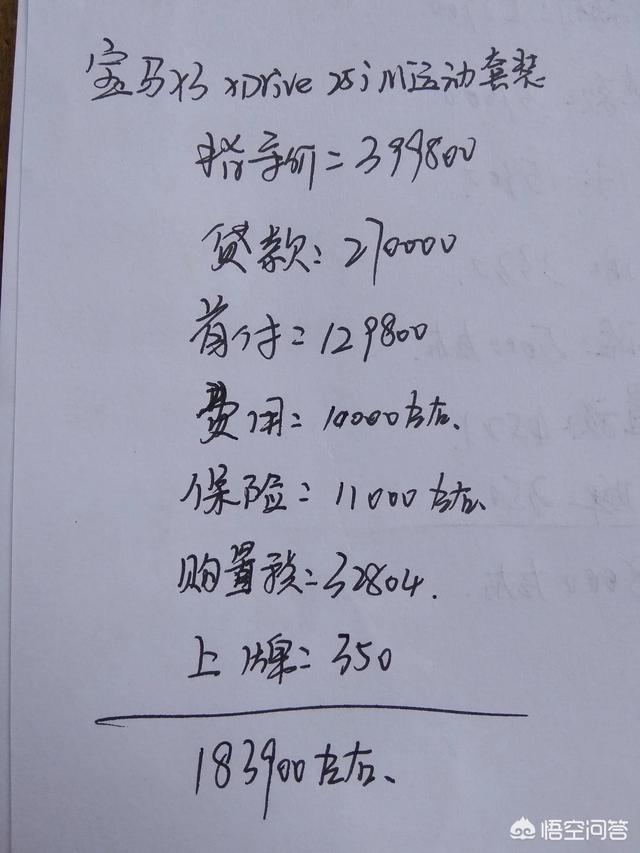 宝马X3 xDrive 25i M运动套装
指导价=399800
贷款:270000
首付=129800
费用=10000左右、
保险=11000左右、
购置税=32804.
上牌=350
183900左右、
悟空问答